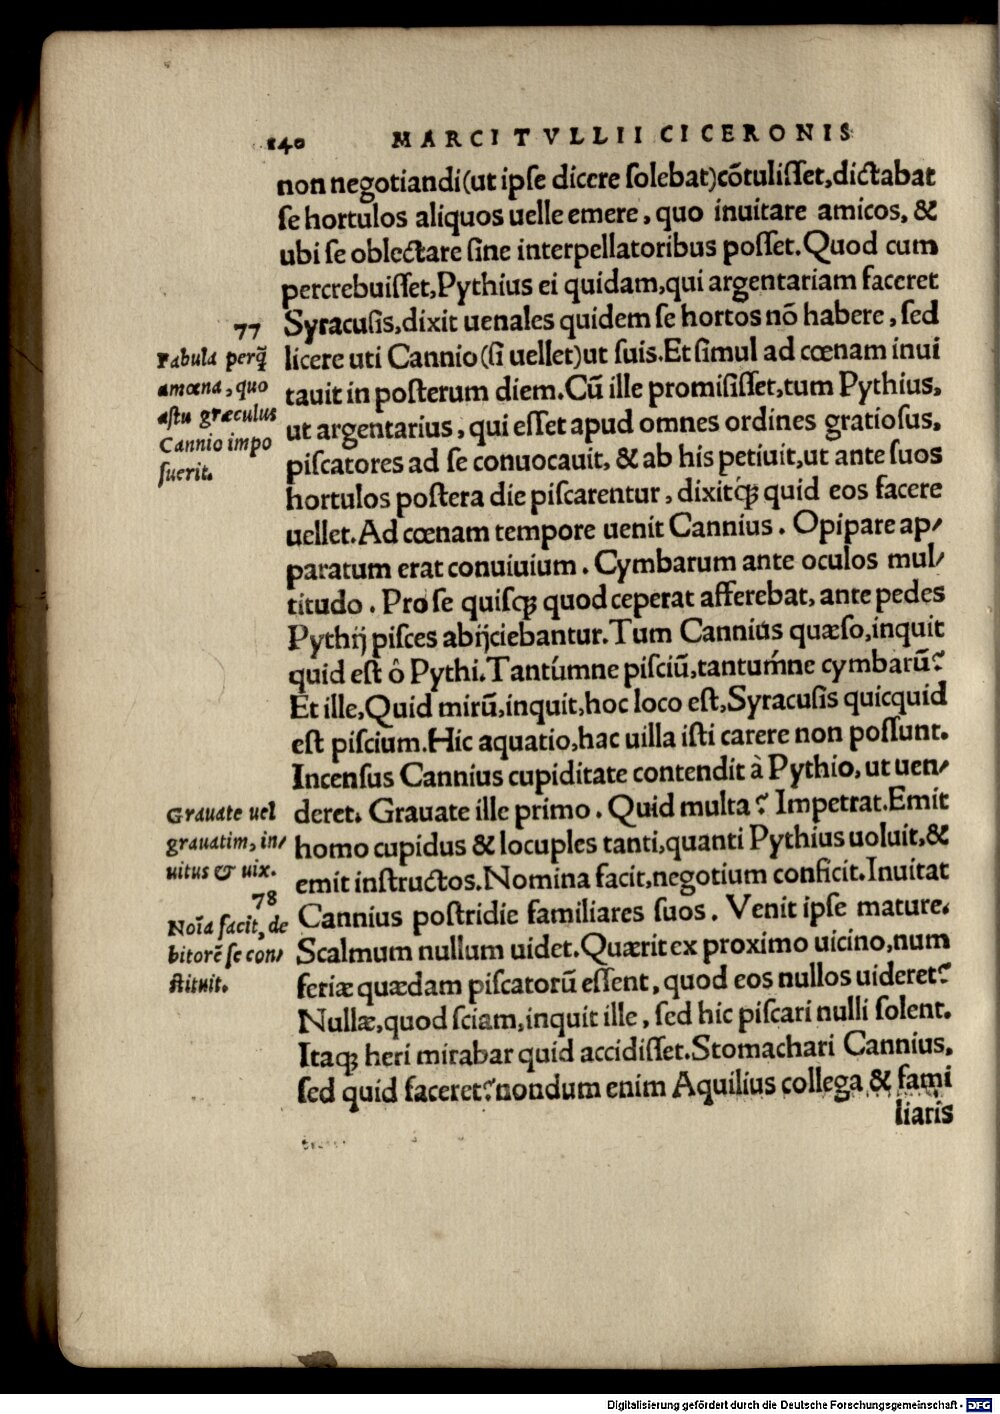 140 MARCI TVLLII CICERONIS
non negotiandi(ut ipse dicere solebat)cõtulisset,dictabat
se hortulos aliquos uelle emere, quo inuitare amicos, &
ubi se oblectare sine interpellatoribus posset.Quod cum
percrebuisset,Pythius ei quidam,qui argentariam faceret
Syracusis,dixit uenales quidem se hortos nõ habere, sed
licere uti Cannio(si uellet)ut suis.Et simul ad cœnam inui
tauit in posterum diem.Cũ ille promisisset,tum Pythius,
ut argentarius, qui esset apud omnes ordines gratiosus,
piscatores ad se conuocauit, & ab his petiuit,ut ante suos
hortulos postera die piscarentur, dixitq́ꝫ quid eos facere
uellet.Ad cœnam tempore uenit Cannius. Opipare ap/
paratum erat conuiuium. Cymbarum ante oculos mul/
titudo. Pro se quisqꝫ quod ceperat afferebat, ante pedes
Pythij pisces abijciebantur.Tum Cannius quæso,inquit
quid est ô Pythi.Tantúmne pisciũ,tantuḿne cymbarũ?
Et ille,Quid mirũ,inquit,hoc loco est,Syracusis quicquid
est piscium.Hic aquatio,hac uilla isti carere non possunt.
Incensus Cannius cupiditate contendit à Pythio, ut uen/
deret. Grauate ille primo. Quid multa? Impetrat.Emit
homo cupidus & locuples tanti,quanti Pythius uoluit,&
emit instructos.Nomina facit,negotium conficit.Inuitat
Cannius postridie familiares suos. Venit ipse mature.
Scalmum nullum uidet.Quærit ex proximo uicino,num
feriæ quædam piscatorũ essent, quod eos nullos uideret?
Nullæ,quod sciam,inquit ille, sed hic piscari nulli solent.
Itaqꝫ heri mirabar quid accidisset.Stomachari Cannius,
sed quid faceret?nondum enim Aquilius collega & fami
liaris
77
Fabula perq̃
amœna, quo
astu græculus
Cannio impo
suerit.
Grauate uel
grauatim, in/
uitus & uix.
78
Noĩa facit, de
bitorẽ se con/
stituit.
Digitalisierung gefördert durch die Deutsche Forschungsgemeinschaft - DFG